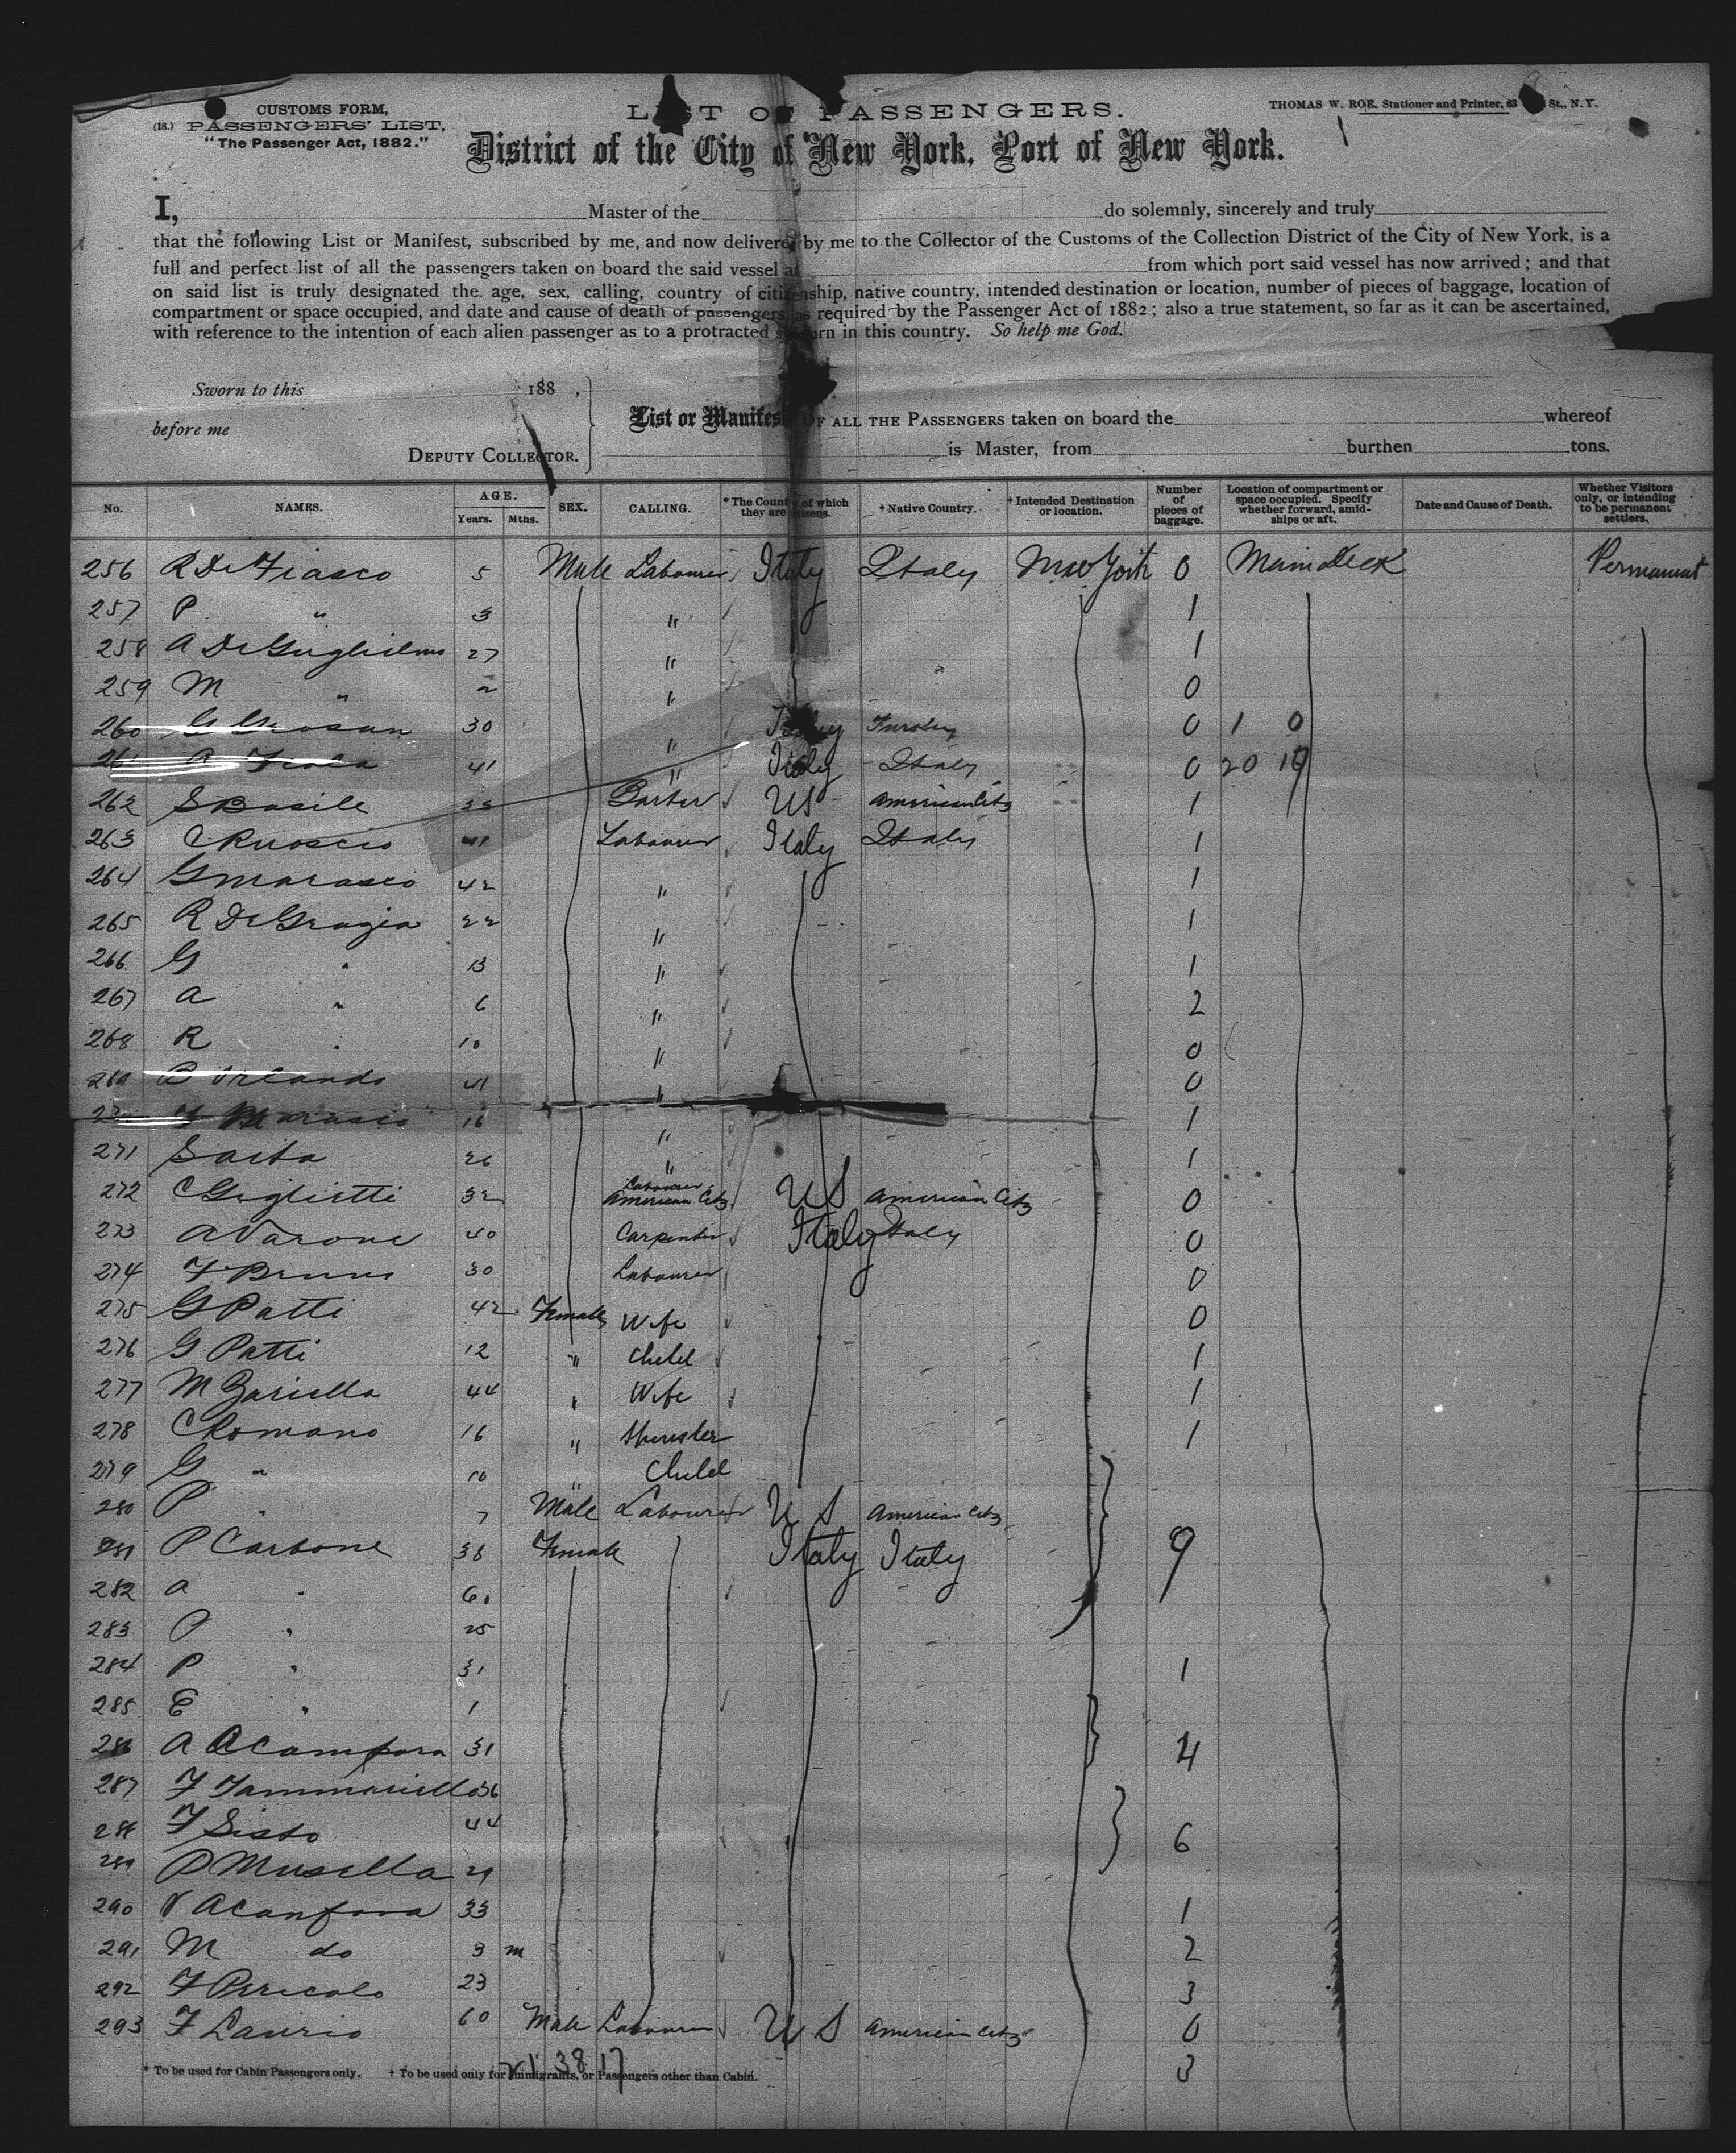 CUSTOMS FORM,
(18.) PASSENGERS' LIST,
"The Passenger Act, 1882."
LIST OF PASSENGERS.
THOMAS W. ROE, Stationer and Printer, 63 St., N. Y.
District of the City of New York, Port of New York.
I, Master of the do solemnly, sincerely and truly
that the following List or Manifest, subscribed by me, and now delivered by me to the Collector of the Customs of the Collection District of the City of New York, is a
full and perfect list of all the passengers taken on board the said vessel at from which port said vessel has now arrived; and that
on said list is truly designated the age, sex, calling, country of citizenship, native country, intended destination or location, number of pieces of baggage, location of
compartment or space occupied, and date and cause of death of passengers, as required by the Passenger Act of 1882; also a true statement, so far as it can be ascertained,
with reference to the intention of each alien passenger as to a protracted sojourn in this country. So help me God.
Sworn to this 188 ,
before me
DEPUTY COLLECTOR.
List or Manifest OF ALL THE PASSENGERS taken on board the whereof
is Master, from burthen tons.
No. NAMES. AGE. Years. Mths. SEX. CALLING. * The Country of which they are citizens. † Native Country. † Intended Destination or location. Number of pieces of baggage. Location of compartment or space occupied. Specify whether forward, amidships or aft. Date and Cause of Death. Whether Visitors only, or intending to be permanent settlers.
256 R De Fiasco 5 Male Labourer Italy Italy New York 0 Main deck Permanent
257 P " 3 " 1
258 A De Guglielmo 27 " 1
259 M " 2 " 0
260 G 30 " Italy 0 1 0
261 A 41 " Italy Italy 0 20 10
262 S Basile Barber US American Citz 1
263 C Ruoscio 41 Labourer Italy Italy 1
264 G Marasco 42 " 1
265 R De Grazia 22 " 1
266 G " 13 " 1
267 A " 6 " 2
268 R " 10 " 0
269 Orlando 41 " 0
F Marasco 16 " 1
271 Saita 26 " 1
272 C Guglietti 32 Labourer American Citz US American Citz 0
273 A Varone 40 Carpenter Italy Italy 0
274 F Bruno 30 Labourer 0
275 G Patti 42 Female Wife 0
276 G Patti 12 " Child 1
277 M Zariella 44 " Wife 1
278 C Romano 16 " Spinster 1
279 G " 10 " Child
280 P " 7 Male Labourer US American Citz
281 P Carbone 38 Female Italy Italy 9
282 A " 6
283 P " 25
284 P " 31 1
285 E " 1
286 A Acampora 31 4
287 F Tammariello 36
288 F Sisto 44 6
289 P Musella 29
290 V Acanfora 33 1
291 M do 3 m 2
292 F Pericolo 23 3
293 F Laurio 60 Male Labourer US American Citz 0
3
* To be used for Cabin Passengers only. † To be used only for Immigrants, or Passengers other than Cabin.
38 17